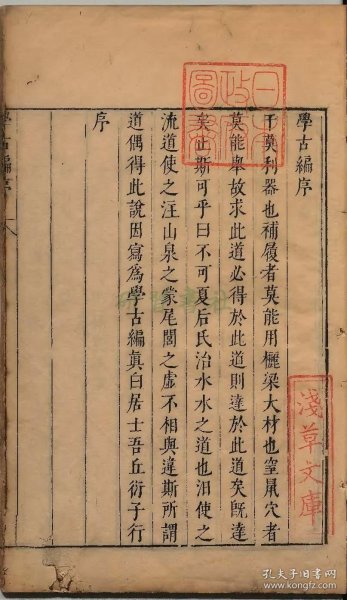 學古編序
干莫利器也補履者莫能用欐梁大材也窒鼠穴者
莫能舉故求此道必得於此道則達於此道矣旣達
矣止斯可乎曰不可夏后氏治水水之道也汩使之
流道使之注山泉之蒙尾閭之虛不相與違斯所謂
道偶得此說因寫爲學古編眞白居士吾丘衍子行
序
學古編序
日本
政府
圖書
淺草文庫
孔夫子旧书网